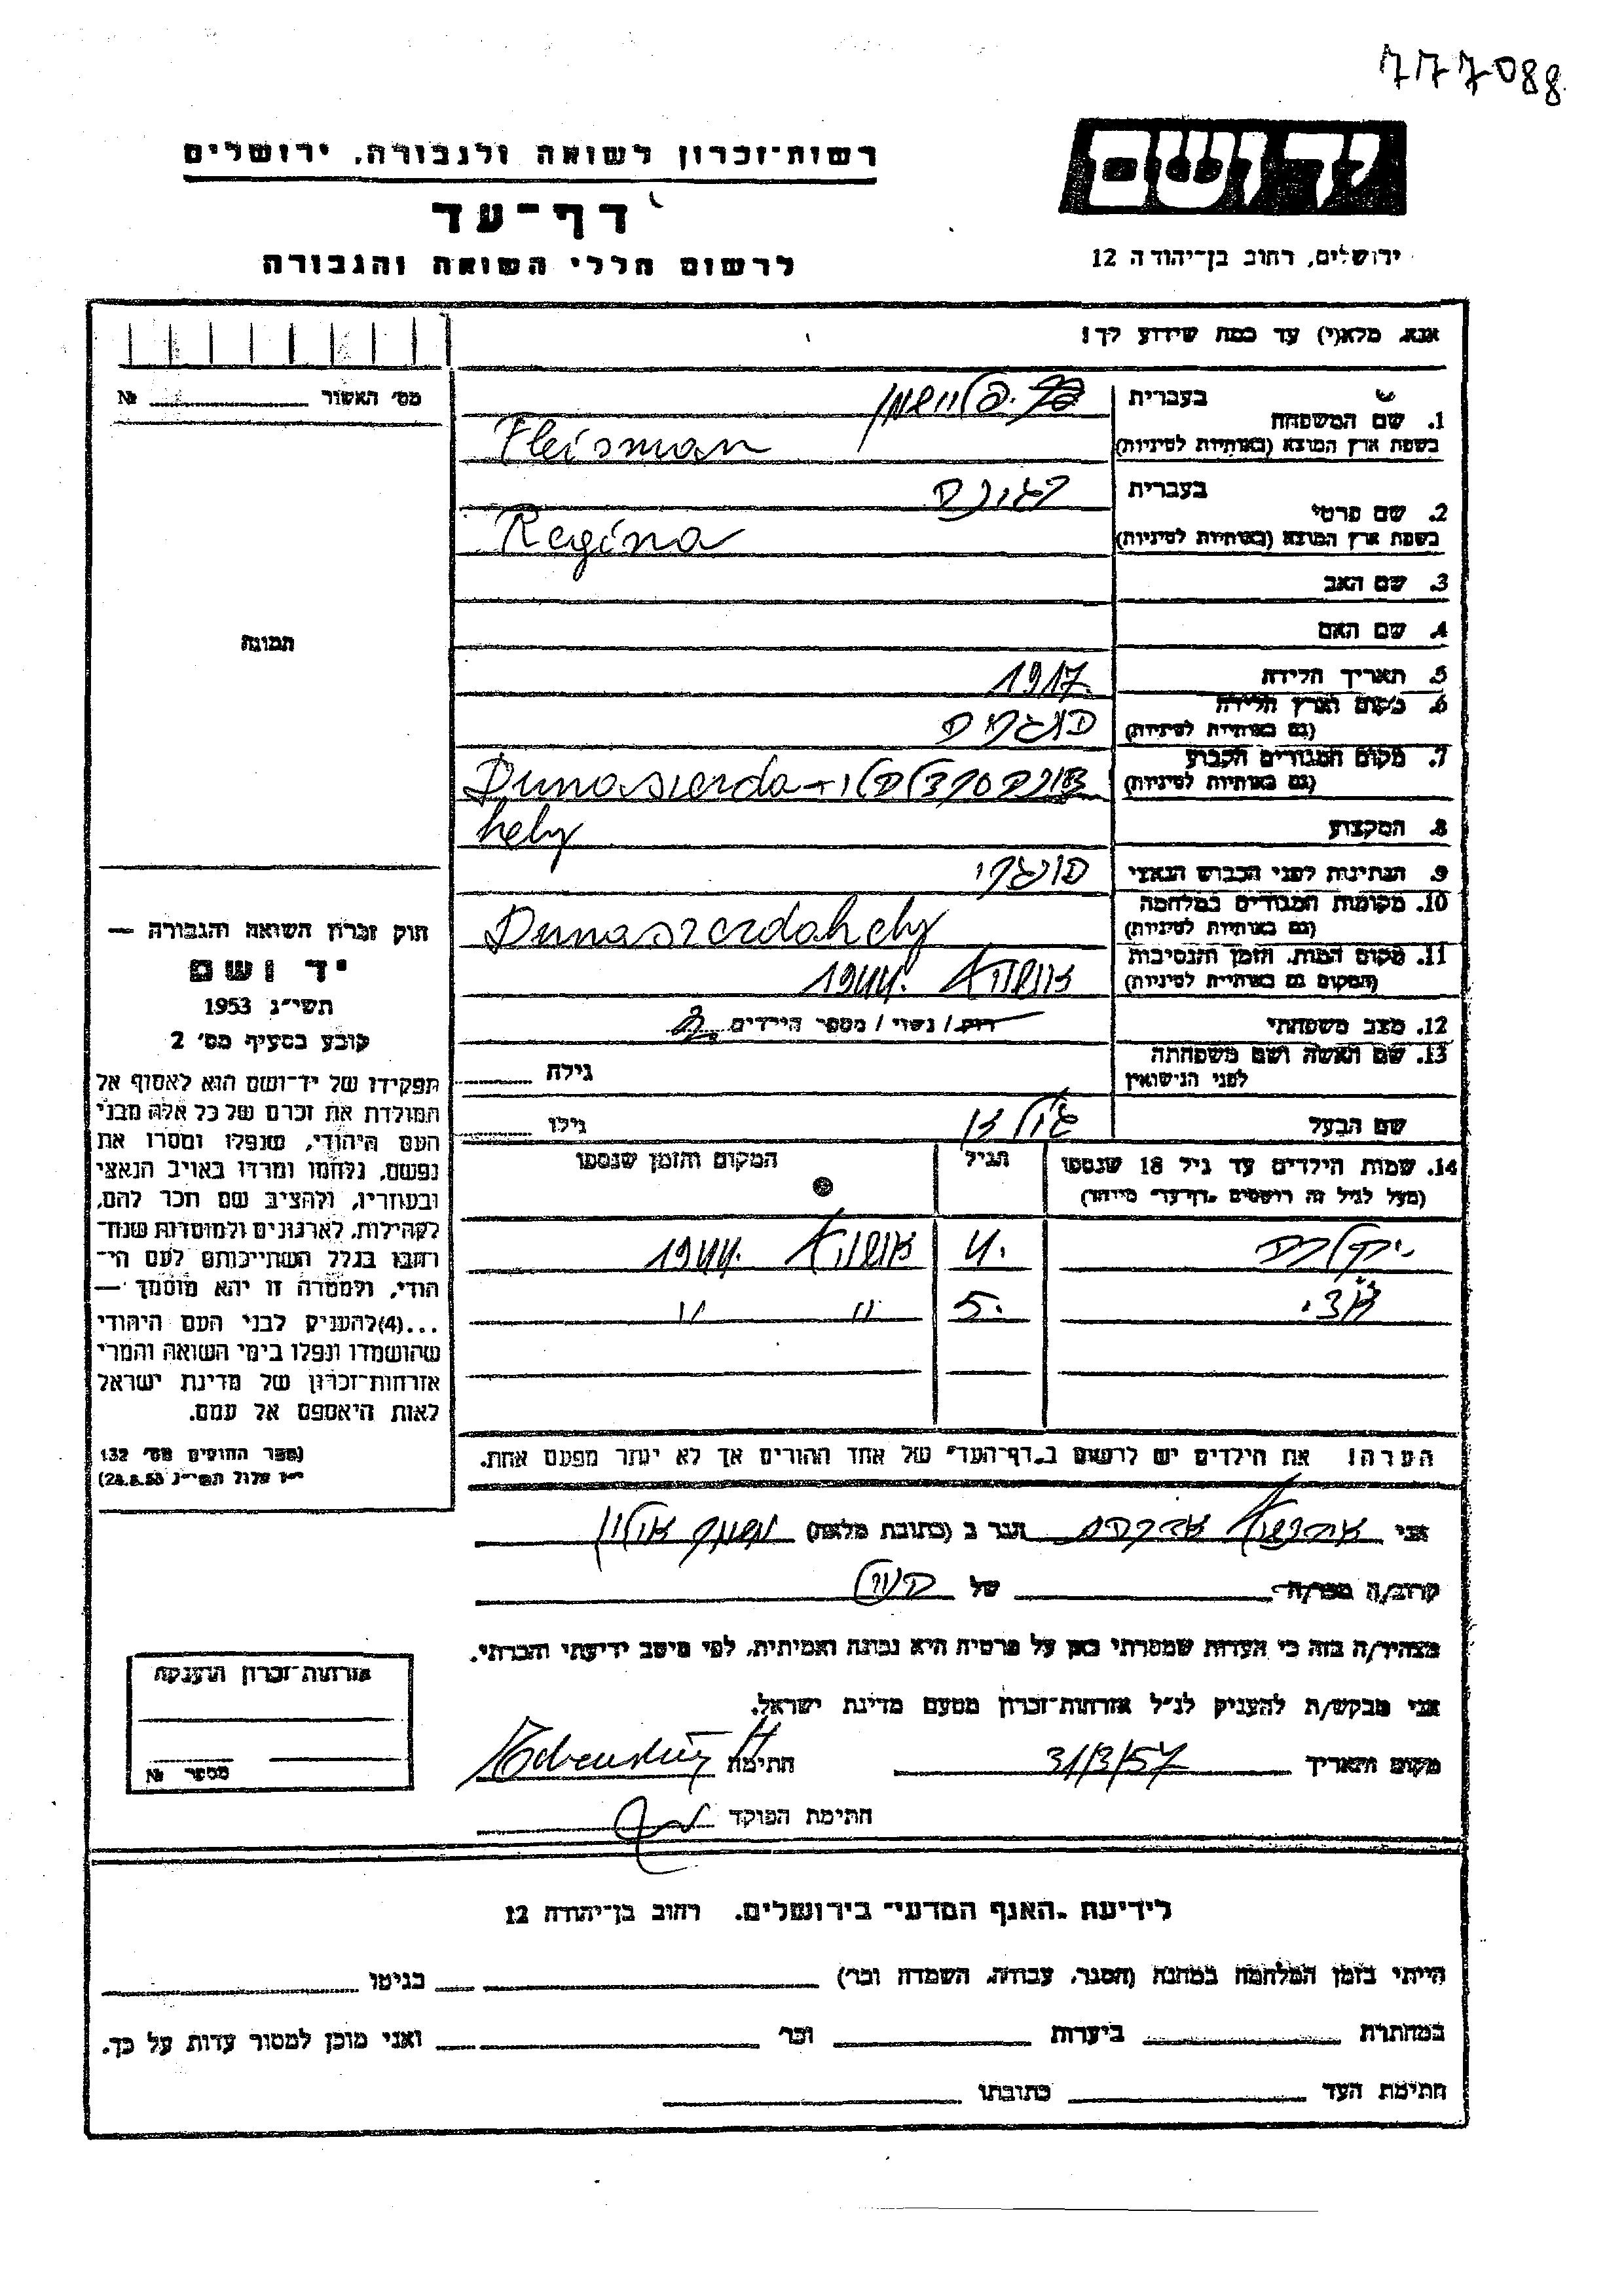 777088
יד ושם
רשות־זכרון לשואה ולגבורה, ירושלים
דף־עד
לרשום חללי השואה והגבורה
ירושלים, רחוב בן־יהודה 12
אנא, מלא(י) עד כמה שידוע לך!
מס' האשור №
1. שם המשפחה
בעברית פליישמן
בשפת ארץ המוצא (באותיות לטיניות) Fleisman
2. שם פרטי
בעברית רגינה
בשפת ארץ המוצא (באותיות לטיניות) Regina
3. שם האב
4. שם האם
תמונה
5. תאריך הלידה 1917
6. מקום וארץ הלידה הונגריה
(גם באותיות לטיניות)
7. מקום המגורים הקבוע Dunaszerda-
(גם באותיות לטיניות) hely
8. המקצוע
9. הנתינות לפני הכבוש הנאצי הונגרי
10. מקומות המגורים במלחמה Dunaszerdahely
(גם באותיות לטיניות)
11. מקום המות, הזמן והנסיבות אושויץ 1944
(המקום גם באותיות לטיניות)
12. מצב משפחתי רוק / נשוי / מספר הילדים 2
13. שם האשה ושם משפחתה
לפני הנישואין
גילה
שם הבעל
גילו
14. שמות הילדים עד גיל 18 שנספו הגיל המקום והזמן שנספו
(מעל לגיל זה רושמים „דף־עד” מיוחד)
4 אושויץ 1944
5 " "
הערה! את הילדים יש לרשום ב„דף־העד” של אחד ההורים אך לא יותר מפעם אחת.
חוק זכרון השואה והגבורה —
יד ושם
תשי״ג 1953
קובע בסעיף מס' 2
תפקידו של יד־ושם הוא לאסוף אל
המולדת את זכרם של כל אלה מבני
העם היהודי, שנפלו ומסרו את
נפשם, נלחמו ומרדו באויב הנאצי
ובעוזריו, ולהציב שם וזכר להם,
לקהילות, לארגונים ולמוסדות שנח־
רבו בגלל השתייכותם לעם הי־
הודי, ולמטרה זו יהא מוסמך —
...(4) להעניק לבני העם היהודי
שהושמדו ונפלו בימי השואה והמרי
אזרחות־זכרון של מדינת ישראל
לאות היאספם אל עמם.
(ספר החוקים מס' 132
י״ז אלול תשי״ג 28.8.53)
אני הגר ב (כתובת מלאה)
קרוב/ה מכר/ה של
מצהיר/ה בזה כי העדות שמסרתי כאן על פרטיה היא נכונה ואמיתית, לפי מיטב ידיעתי והכרתי.
אני מבקש/ת להעניק לנ״ל אזרחות־זכרון מטעם מדינת ישראל.
מקום ותאריך 31/3/57 חתימה
חתימת הפוקד
אזרחות־זכרון הוענקה
מספר №
לידיעת „האגף המדעי” בירושלים, רחוב בן־יהודה 12
הייתי בזמן המלחמה במחנה (הסגר, עבודה, השמדה וכו') בגיטו
במחתרת ביערות וכו' ואני מוכן למסור עדות על כך.
חתימת העד כתובתו